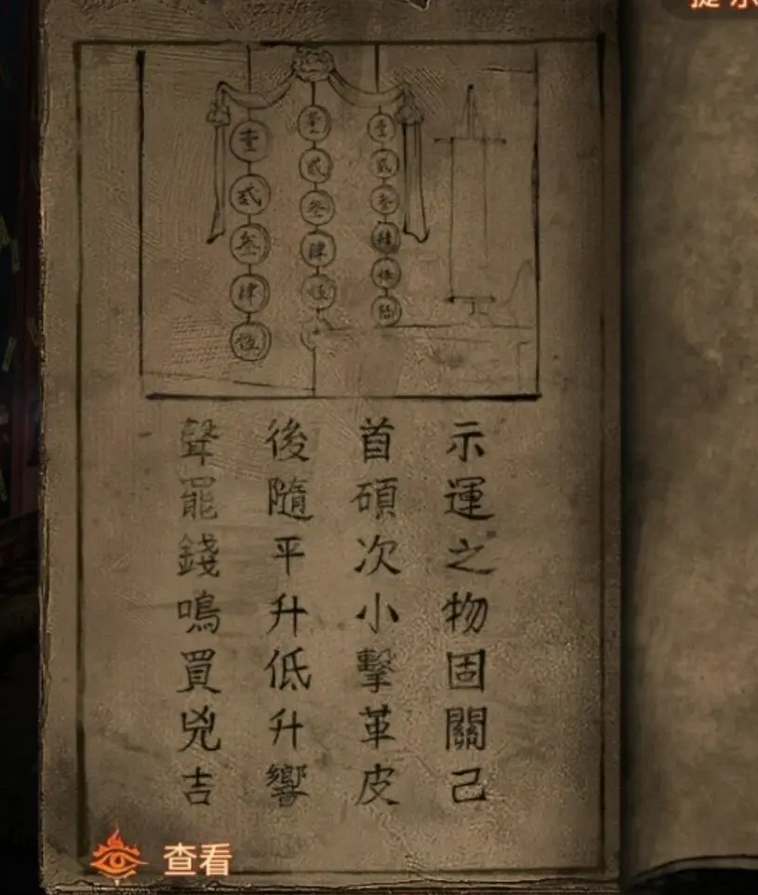 示運之物固關己
首碩次小擊革皮
後隨平升低升響
聲罷錢鳴買兇吉
壹貳叁肆伍
壹貳叁肆伍
壹貳叁肆伍陆
查看